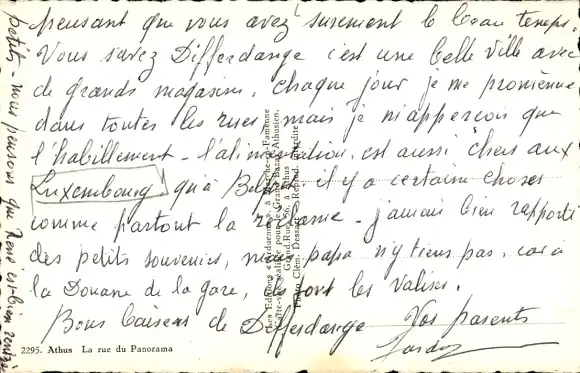 pensant que vous avez surement le beau temps.
Vous savez Differdange c'est une belle ville avec
de grands magasins, chaque jour je me promène
dans toutes les rues, mais je m'apperçois que
l'habillement - l'alimentation, est aussi chers aux
Luxembourg qu'à il y a certaine choses
comme partout la réclame - j'aurais bien rapporté
des petits souvenirs, mais papa n'y tiens pas, car à
la Douane de la gare, font les valises.
Bons baisers de Differdange Vos parents
petits - nous pensons que René est bien
Les Editions Arduennes, à Marche-en-Famenne
Grand'Rue, 56, à Athus
Photo Clém. Dessart - Reprod. interdite
2295. Athus La rue du Panorama